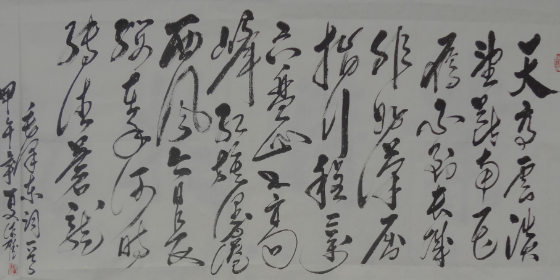 天高雲淡
望斷南飛
雁不到長城
非好漢屈
指行程二萬
六盤山上高
峰紅旗漫捲
西風今日長
纓在手何時
縛住蒼龍
毛澤東詞一首
甲午年夏